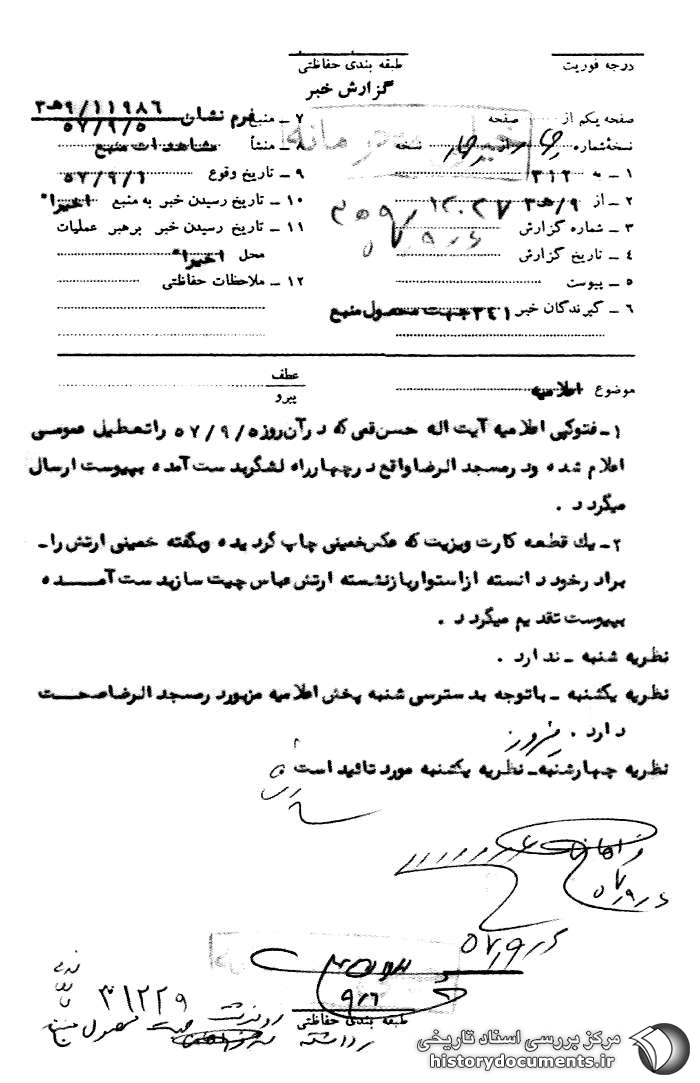 درجه فوریت
طبقه بندی حفاظتی
گزارش خبر
خیلی محرمانه
صفحه یکم از صفحه
نسخهٔ شماره چهار از چهار نسخه
۱ ـ به ۳۱۲
۲ ـ از ۹/ﻫ۳
۳ ـ شماره گزارش
۴ ـ تاریخ گزارش ۵۷/۹/۶
۵ ـ پیوست
۶ ـ گیرندگان خبر ۳۴۱جهت محصول منبع
۷ ـ منبع فرم نشان ۱۱۹۸۶/۹ﻫ۳
۵۷/۹/۵
۸ ـ منشأ مشاهدات منبع
۹ ـ تاریخ وقوع ۵۷/۹/۱
۱۰ ـ تاریخ رسیدن خبر به منبع اخیرا"
۱۱ ـ تاریخ رسیدن خبر برهبر عملیات
محل اخیرا"
۱۲ ـ ملاحظات حفاظتی
عطف
پیرو
موضوع اعلامیه
۱ـ فتوکپی اعلامیه آیت اله حسن قمی که درآن روز ۵۷/۹/۵ راتعطیل عمومی
اعلام شده ودرمسجد الرضاواقع درچهارراه لشگربدست آمده بپیوست ارسال
میگردد .
۲ـ یك قطعه کارت ویزیت که عکس خمینی چاپ گردیده وبگفته خمینی ارتش راـ
برادرخود دانسته ازاستواربازنشسته ارتش عباس چیت سازبدست آمـــده
بپیوست تقدیم میگردد .
نظریه شنبه ـ ندارد .
نظریه یکشنبه ـ باتوجه بدسترسی شنبه پخش اعلامیه مزبوردرمسجد الرضاصحـــت
دارد .
نظریه چهارشنبه ـ نظریه یکشنبه مورد تائید است
۵۷/۹/۶
۵۷/۹/۶
۹/۶
طبقه بندی حفاظتی
۳۱۲۲۹
مرکز بررسی اسناد تاریخی
historydocuments.ir